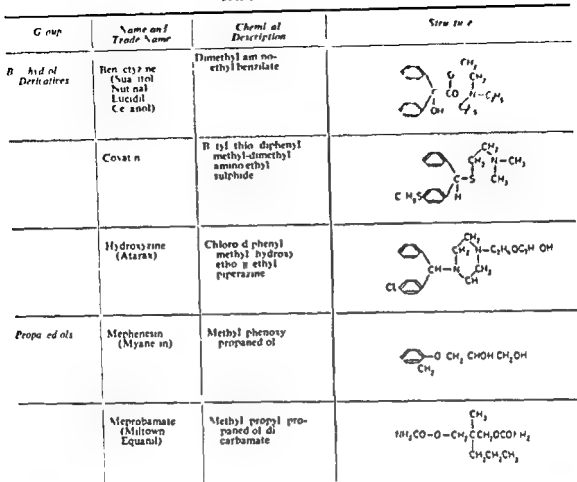 G oup
Name and
Trade Name
Chemi al
Description
Stru tu e
B hyd ol
Derivatives
Ben ctyz ne
(Sua itol
Nut nal
Lucidil
Ce anol)
Dimethyl am no-
ethyl benzilate
CH2
O CH2
CO N—C2H5
OH C2H5
Covat n
B tyl thio diphenyl
methyl-dimethyl
amino ethyl
sulphide
CH2
CH2 N—CH3
C—S CH3
H
Hydroxyzine
(Atarax)
Chloro d phenyl
methyl hydroxy
etho y ethyl
piperazine
CH2
CH2 N—C2H4OC2H OH
CH—N CH2
Cl CH
Propa ed ols
Mephenesin
(Myane in)
Methyl phenoxy
propaned ol
—O CH2 CHOH CH2OH
CH2
Meprobamate
(Miltown
Equanil)
Methyl propyl pro-
paned ol di
carbamate
CH3
NH2CO—O—CH2CCH2OCO H2
CH2CH2CH3